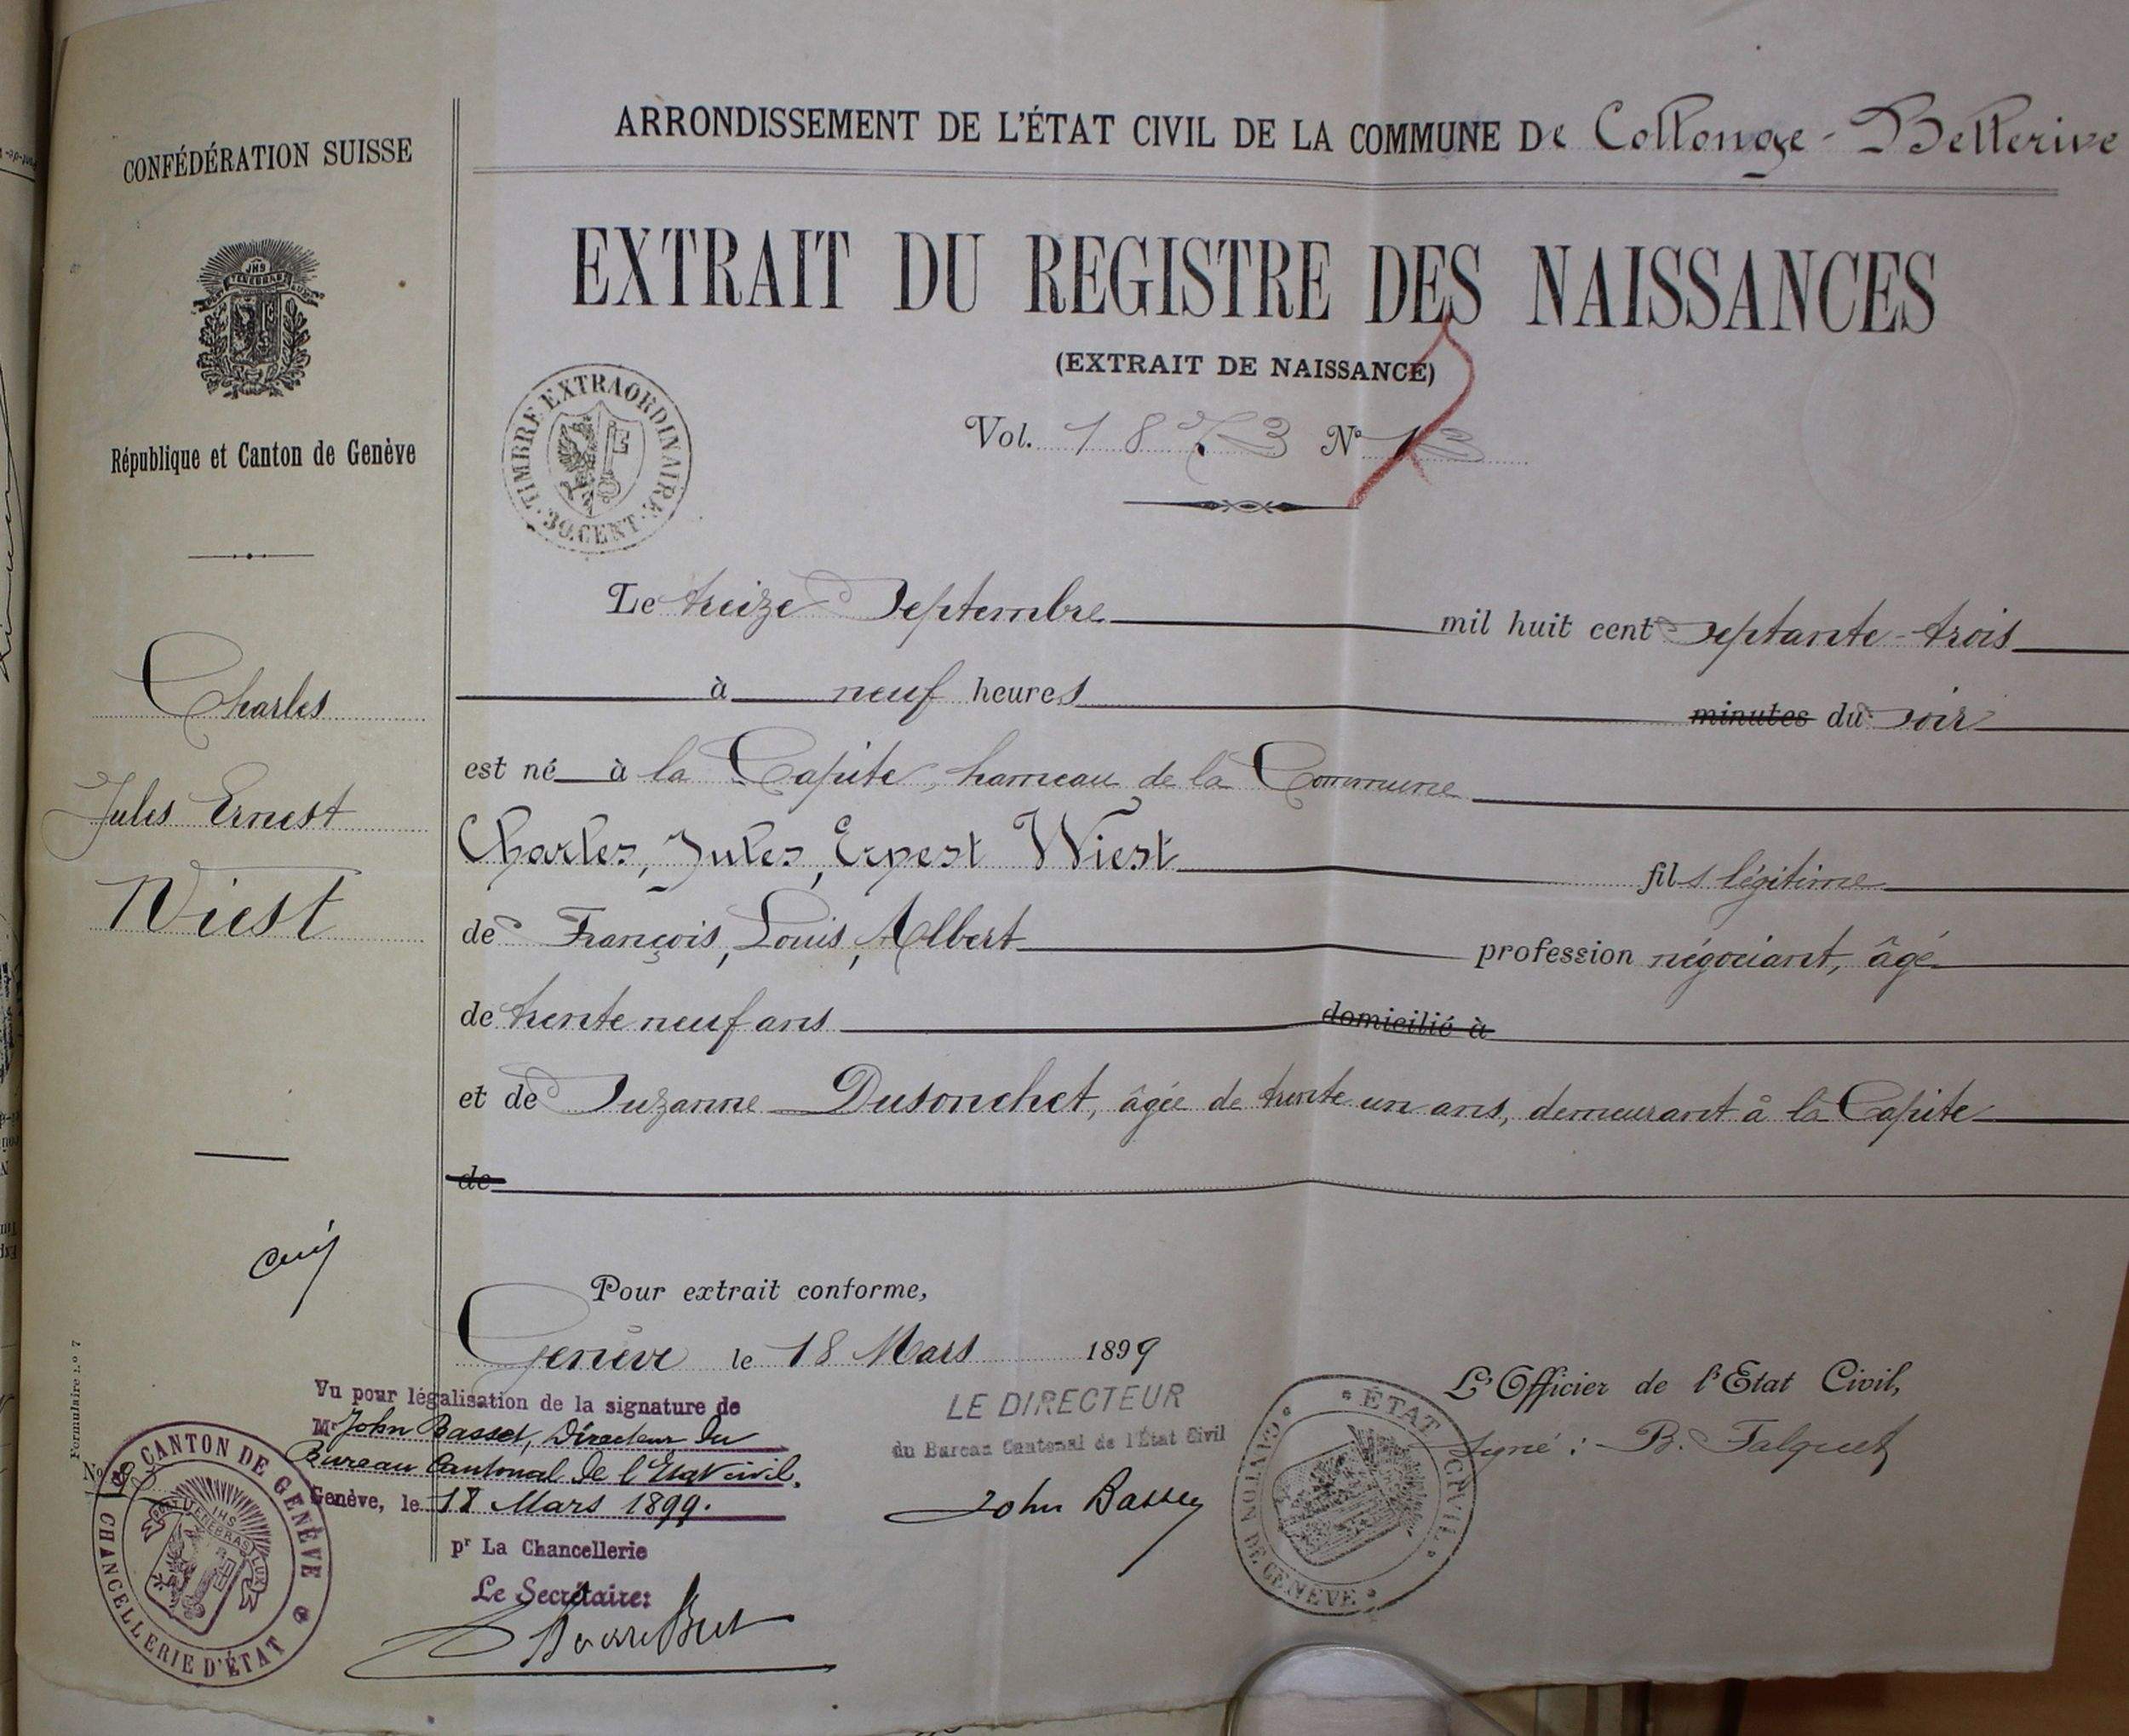 CONFÉDÉRATION SUISSE
JHS
République et Canton de Genève
Charles
Jules Ernest
Wiest
Formulaire n.º 7
ARRONDISSEMENT DE L'ÉTAT CIVIL DE LA COMMUNE De Collonge-Bellerive
EXTRAIT DU REGISTRE DES NAISSANCES
(EXTRAIT DE NAISSANCE)
TIMBRE EXTRAORDINAIRE
30.CENT.
Vol. 1873 Nº 13
Le treize Septembre mil huit cent septante-trois
à neuf heures minutes du soir
est né à la Capite, hameau de la Commune
Charles, Jules, Ernest Wiest fils légitime
de François, Louis, Albert profession négociant, âgé
de trente neuf ans domicilié à
et de Suzanne Dusonchet, âgée de trente un ans, demeurant à la Capite
de
Pour extrait conforme,
Genève le 18 Mars 1899
L'Officier de l'Etat Civil,
signé: B. Falquet
LE DIRECTEUR
du Bureau Cantonal de l'État Civil
John Basset
ÉTAT CIVIL
CANTON DE GENÈVE
Vu pour légalisation de la signature de
Mr John Basset, Directeur du
Bureau Cantonal de l'Etat civil.
Genève, le 18 Mars 1899.
pr La Chancellerie
Le Secrétaire:
CANTON DE GENÈVE
CHANCELLERIE D'ÉTAT
POST TENEBRAS LUX
IHS